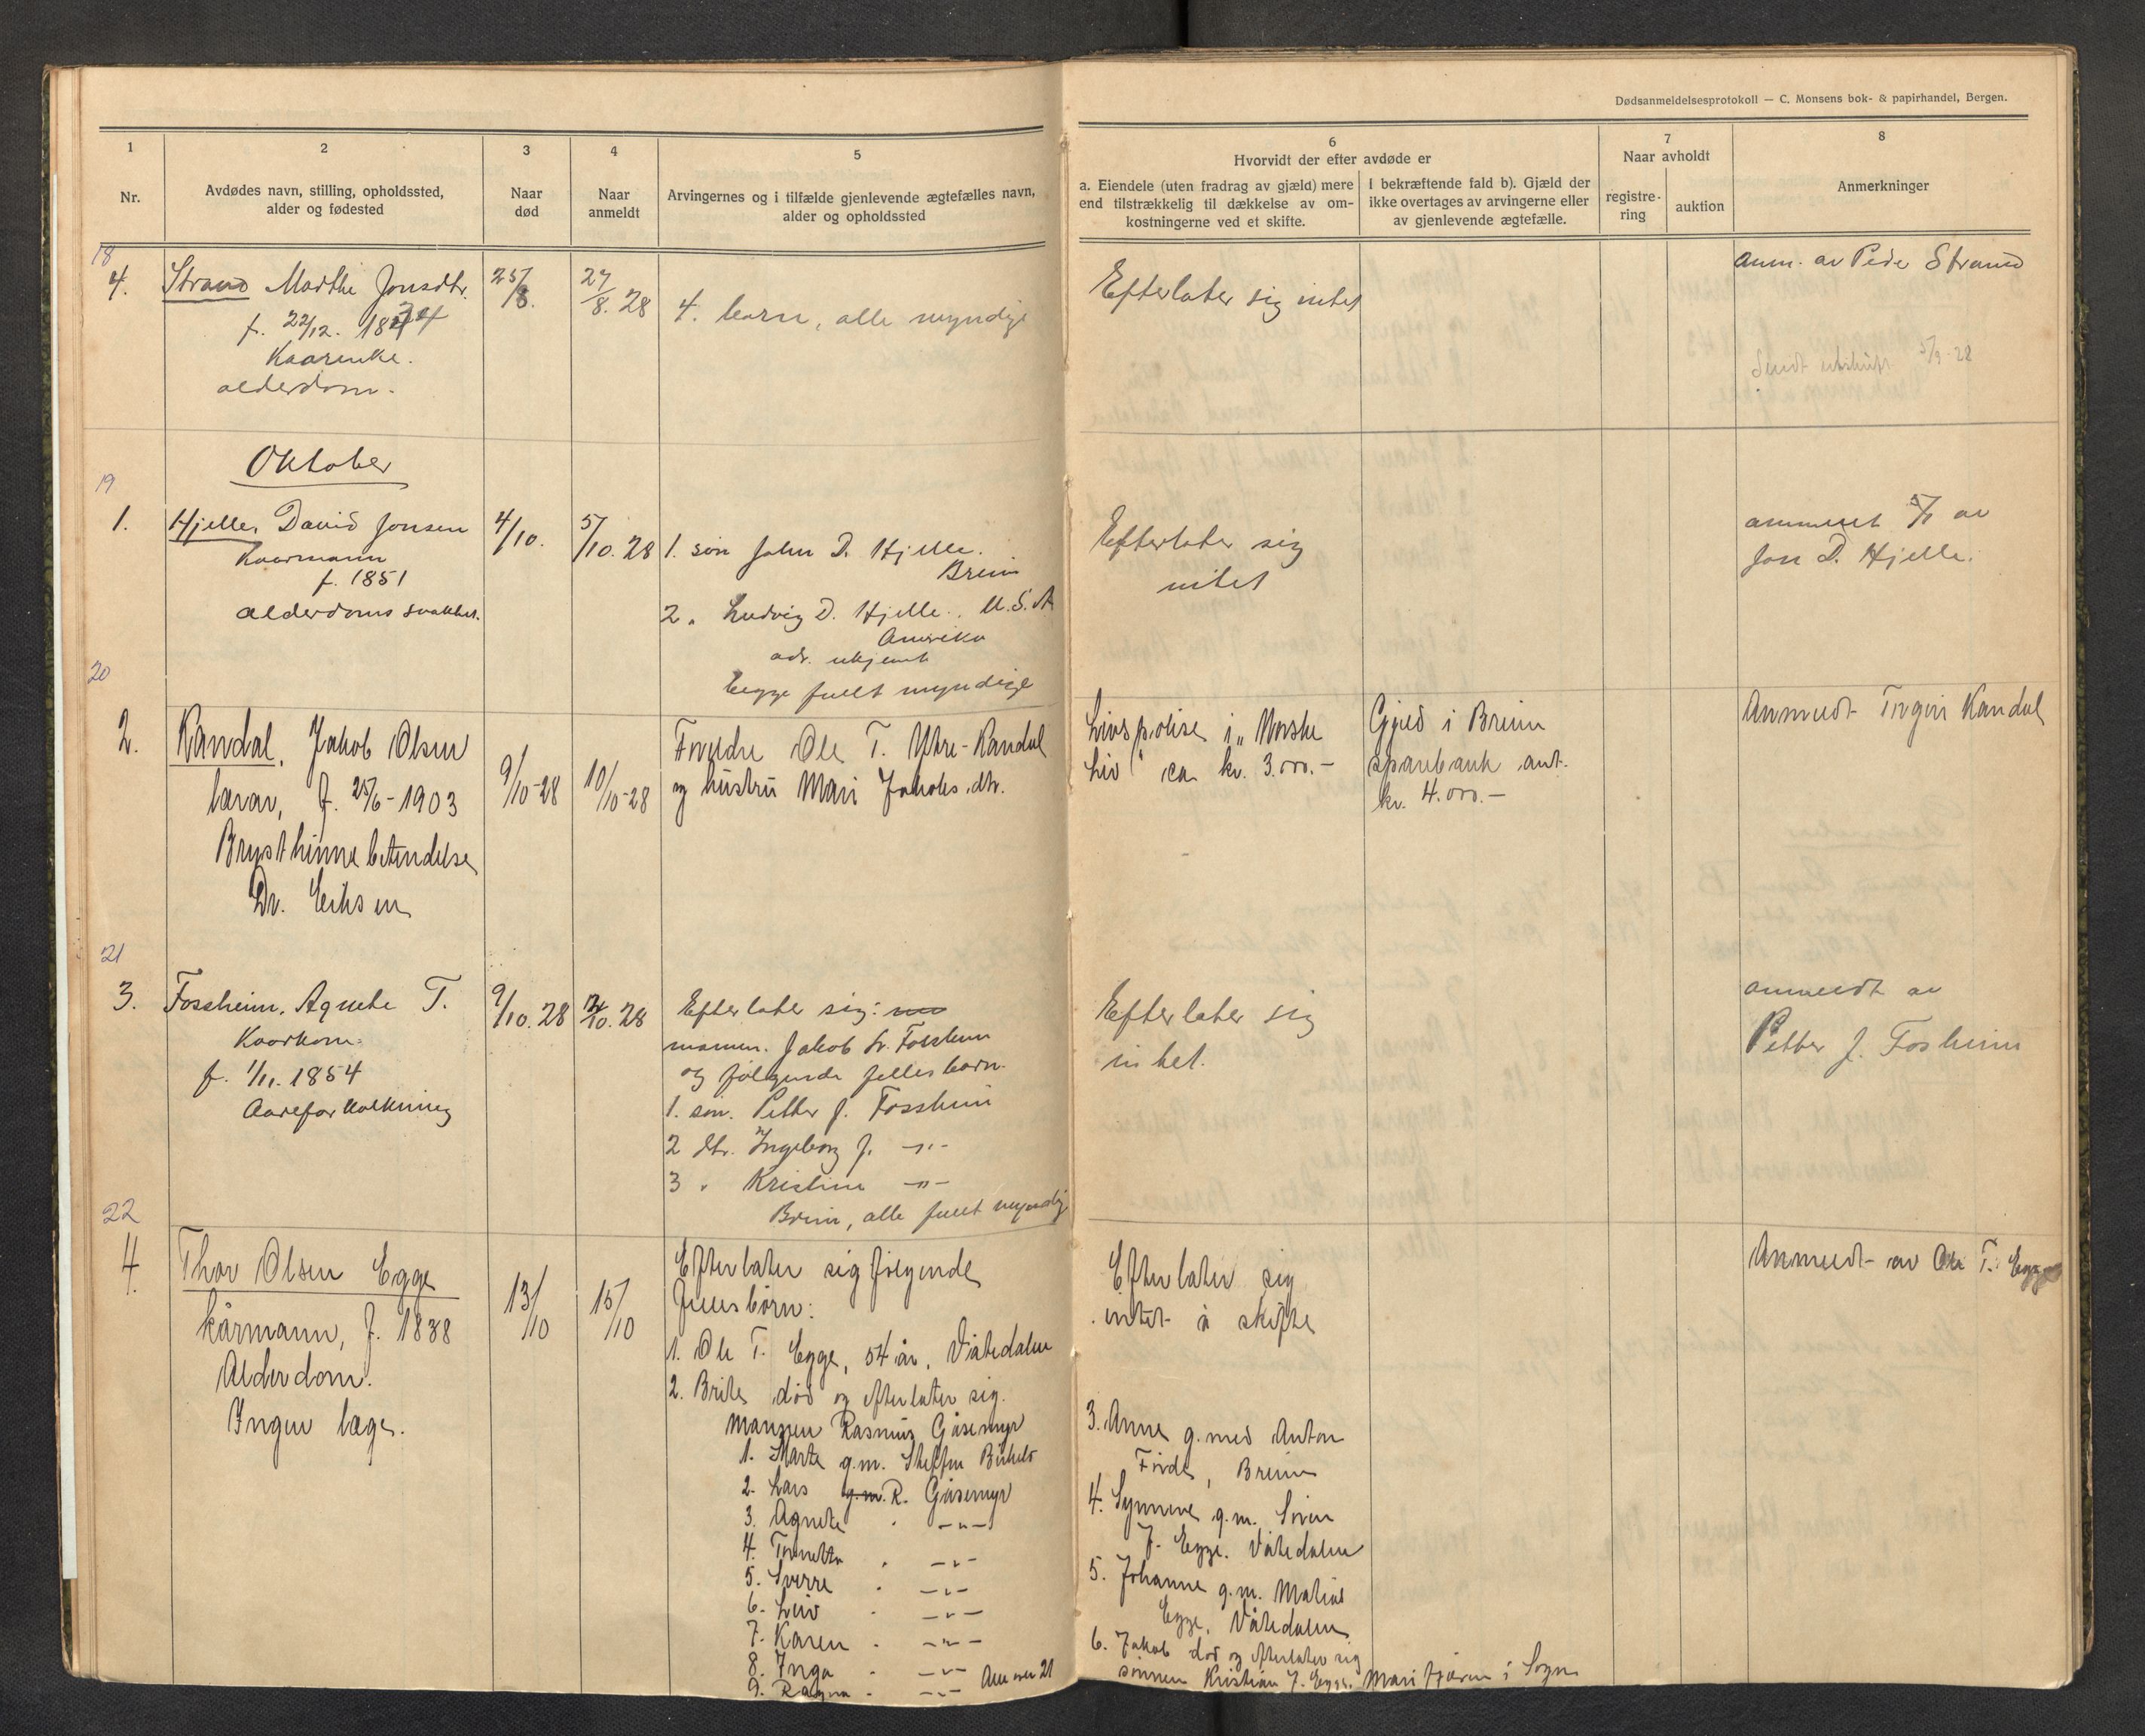 Dødsanmeldelsesprotokoll — C. Monsens bok- & papirhandel, Bergen.
1
Nr.
2
Avdødes navn, stilling, opholdssted,
alder og fødested
3
Naar
død
4
Naar
anmeldt
5
Arvingernes og i tilfælde gjenlevende ægtefælles navn,
alder og opholdssted
6
Hvorvidt der efter avdøde er
a. Eiendele (uten fradrag av gjæld) mere
end tilstrækkelig til dækkelse av om-
kostningerne ved et skifte.
I bekræftende fald b). Gjæld der
ikke overtages av arvingerne eller
av gjenlevende ægtefælle.
7
Naar avholdt
registre-
ring
auktion
8
Anmerkninger
18
4.
Strand Marthe Jonsdtr.
f. 22/12. 1834
Kaarenke.
alderdom.
25/8.
27/8. 28
4. barn, alle myndige
Efterlater sig intet
anm. av Peder Strand
Sendt utskrift 5/9-28
Oktober
19
1.
Hjelle, David Jonsen
Kaarmann
f. 1851
alderdoms svakhet.
4/10.
5/10. 28
1. søn John D. Hjelle.
Breim
2. " Ludvig D. Hjelle. U.S.A
Amerika
adr. ukjent
begge fullt myndige
Efterlater sig
intet
anmeldt 5/ av
Jon D. Hjelle.
20
2.
Kandal, Jakob Olsen
lærar, f. 25/6-1903
Brysthinnebetendelse
Dr. Eriksen
9/10-28
10/10-28
Foreldre Ole T. Ytre-Kandal
og hustru Mari Jakobs.dtr.
Livspolise i "Norske
Liv" ca kr. 3.000.-
Gjeld i Breim
sparebank ant.
kr. 4.000.-
Anmeldt Kandal
21
3.
Fossheim, Agnete T.
Kaarkone
f. 1/11. 1854
Aareforkalkning
9/10. 28
/10. 28
Efterlater sig:
mannen. Jakob Fossheim
og følgende felles barn.
1. søn. Petter J. Fossheim
2 dtr. Ingeborg J. -"-
3 " Kristine -"-
Breim, alle fullt myndig
Efterlater sig
intet.
anmeldt av
Petter J. Fosheim
22
4.
Thor Olsen Egge
kårmann, f. 1838
Alderdom.
Ingen læge.
13/10
15/10
Efterlater sig følgende
fellesbørn:
1. Ole T. Egge, 54 år, Våtedalen
2. Brite død og efterlater sig.
Mannen Rasmus Gåsemyr
1. Marta g.m. Steffen
2. Lars g.m. R. Gåsemyr
3. Agnete " -"-
4. Tomette " -"-
5. Sverre " -"-
6. Leiv " -"-
7. Karen " -"-
8. Inga " -"-
9. Ragna " -"- Alle over 21
Efterlater sig
intet å skifte
3. Anne g. med Anton
Førde, Breim
4. Synneve g.m. Sivin
J. Egge. Våtedalen
5. Johanne g.m. Matias
Egge, Våtedalen
6. Jakob død og efterlater sig
sønnen Kristian J. Egge, i Sogn
Anmeldt av Ole T. Egge